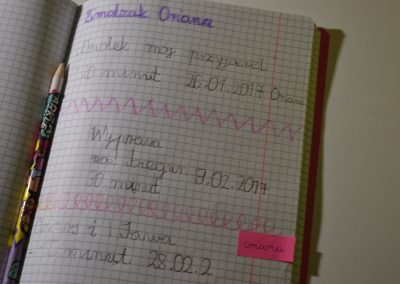 Zimolzak Oriana
Aniołek mój przyjaciel
10 minut 26.01.2017 Oriana
Wyprawa
na Biegun 9.02.2017
30 minut
i Janka
minut 28.02.2
oriana